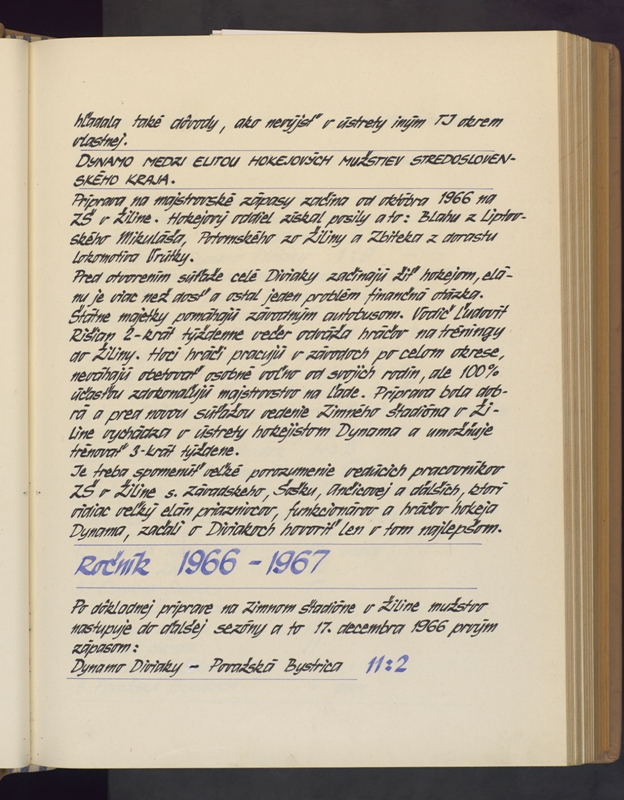 hľadala také dôvody, ako nevýjsť v ústrety iným TJ okrem
vlastnej.
DYNAMO MEDZI ELITOU HOKEJOVÝCH MUŽSTIEV STREDOSLOVEN-
SKÉHO KRAJA.
Príprava na majstrovské zápasy začína od októbra 1966 na
ZŠ v Žiline. Hokejový oddiel získal posily a to: Blahu z Liptov-
ského Mikuláša, Potomského zo Žiliny a Zbiteka z dorastu
Lokomotíva Vrútky.
Pred otvorením súťaže celé Diviaky začínajú žiť hokejom, elá-
nu je viac než dosť a ostal jeden problém finančná otázka.
Štátne majetky pomáhajú závodným autobusom. Vodič Ľudovít
Rišian 2-krát týždenne večer odváža hráčov na tréningy
do Žiliny. Hoci hráči pracujú v závodoch po celom okrese,
neváhajú obetovať osobné voľno od svojich rodín, ale 100%
účasťou zdokonaľujú majstrovstvo na ľade. Príprava bola dob-
rá a pred novou súťažou vedenie Zimného štadióna v Ži-
line vychádza v ústrety hokejistom Dynama a umožňuje
trénovať 3-krát týždene.
Je treba spomenúť veľké porozumenie vedúcich pracovníkov
ZŠ v Žiline s. Závadského, Sašku, Ančicovej a ďalších, ktorí
vidiac veľký elán priaznivcov, funkcionárov a hráčov hokeja
Dynama, začali o Diviakoch hovoriť len v tom najlepšom.
Ročník 1966 - 1967
Po dôkladnej príprave na zimnom štadióne v Žiline mužstvo
nastupuje do ďalšej sezóny a to 17. decembra 1966 prvým
zápasom:
Dynamo Diviaky - Považská Bystrica 11:2